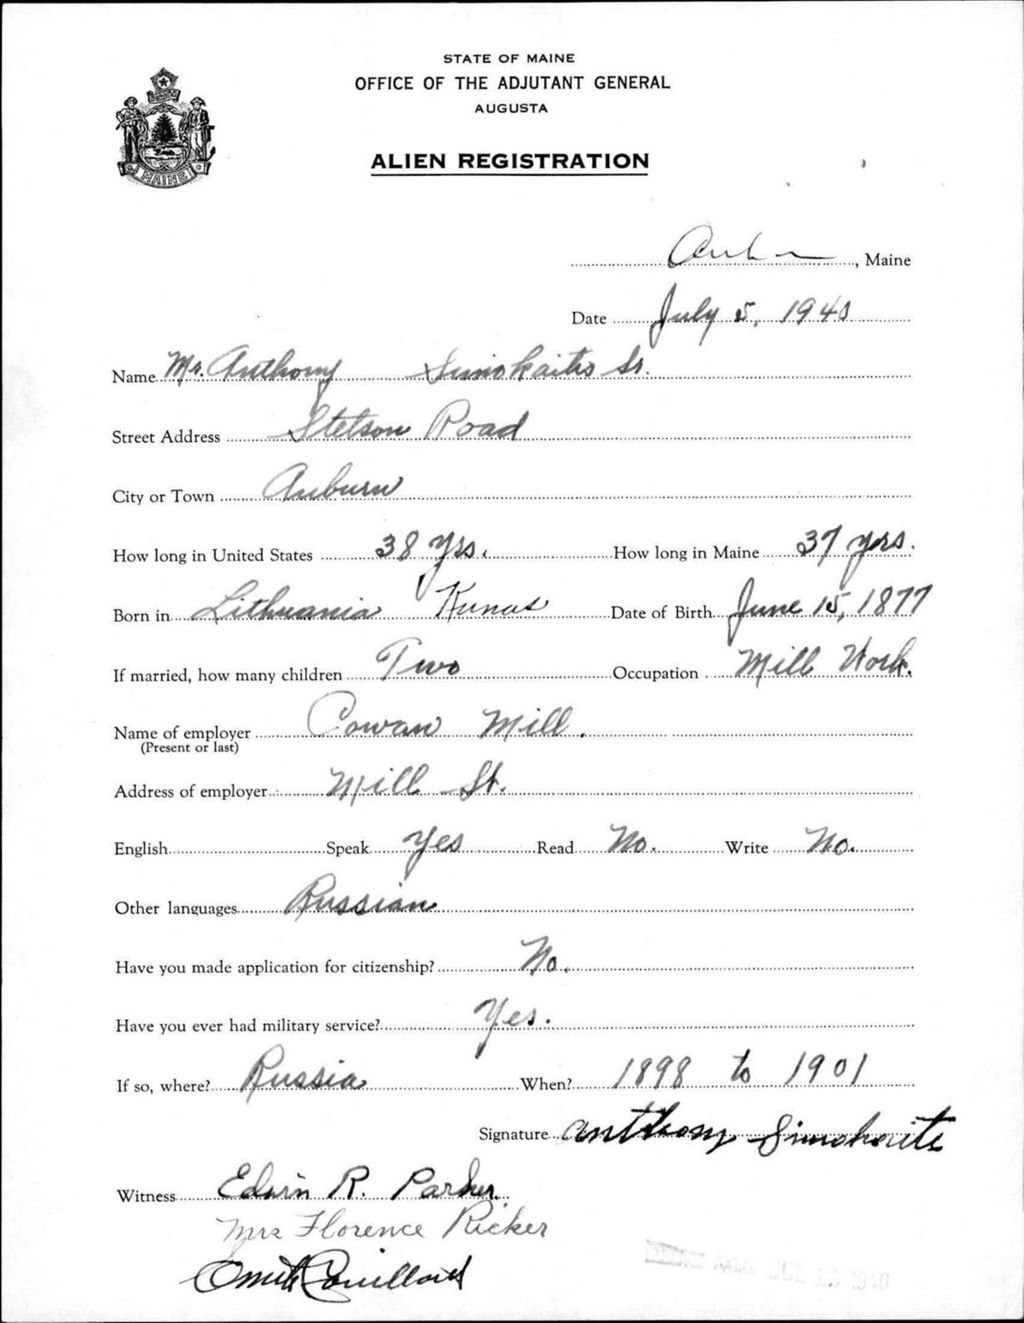 STATE OF MAINE
OFFICE OF THE ADJUTANT GENERAL
AUGUSTA
ALIEN REGISTRATION
MAINE
, Maine
Date July 5, 1940
Name Mr. Anthony Simokaitis Sr.
Street Address Stetson Road
City or Town Auburn
How long in United States 38 yrs. How long in Maine 37 yrs.
Born in Lithuania Kunas Date of Birth June 15, 1877
If married, how many children Two Occupation Mill Work.
Name of employer Cowan Mill.
(Present or last)
Address of employer Mill St.
English Speak Yes Read No. Write No.
Other languages Russian
Have you made application for citizenship? No.
Have you ever had military service? Yes.
If so, where? Russia When? 1898 to 1901
Signature Anthony Simokaitis
Witness Edwin R. Parker.
Mrs Florence Ricker